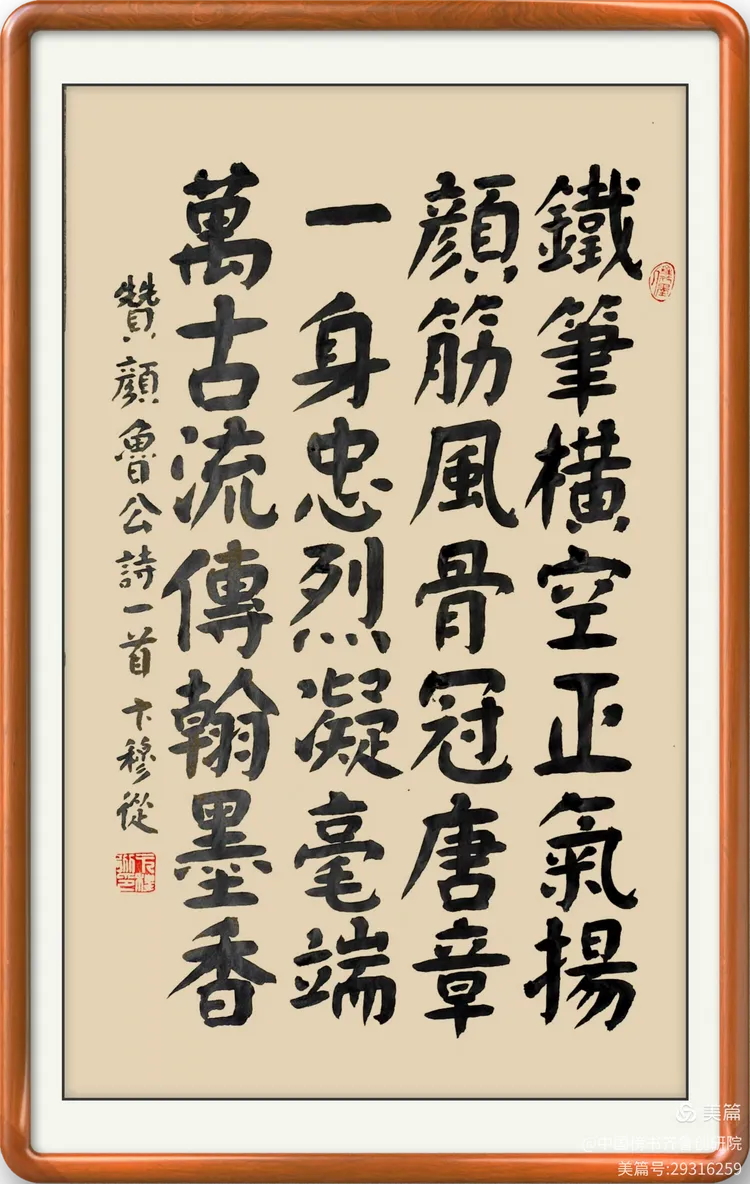 鐵筆橫空正氣揚
顏筋風骨冠唐章
一身忠烈凝毫端
萬古流傳翰墨香
贊顏魯公詩一首 卞穆從
美篇
@中国楷书齐鲁创研院
美篇号:29316259